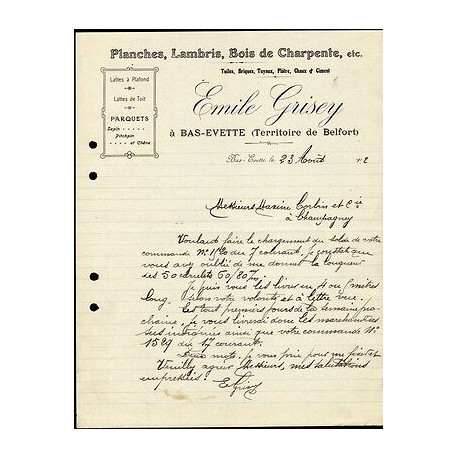 Planches, Lambris, Bois de Charpente, etc.
Tuiles, Briques, Tuyaux, Plâtre, Chaux & Ciment
Lattes à Plafond
Lattes de Toit
PARQUETS
Sapin
Pitchpin
et Chêne
Emile Grisey
à BAS-EVETTE (Territoire de Belfort)
Bas-Evette, le 23 Août 2
Messieurs Maxime Corbin et Cie
à Champagney
Voulant faire le chargement du solde de votre
commande N° du 7 courant, je constate que
vous avez oublié de me donner la longueur
des 50 carrelets 60/80
Je puis vous les livrer en 4 ou mètres
long. selon votre volonté et à lettre vue.
Les tout premiers jours de la semaine pro-
chaine, je vous livrerai donc les marchandises
ainsi que votre commande N°
1529 du 17 courant.
Deux mots, je vous prie pour me fixer et
Veuillez agréer Messieurs, mes salutations
empressées!
EGrisey